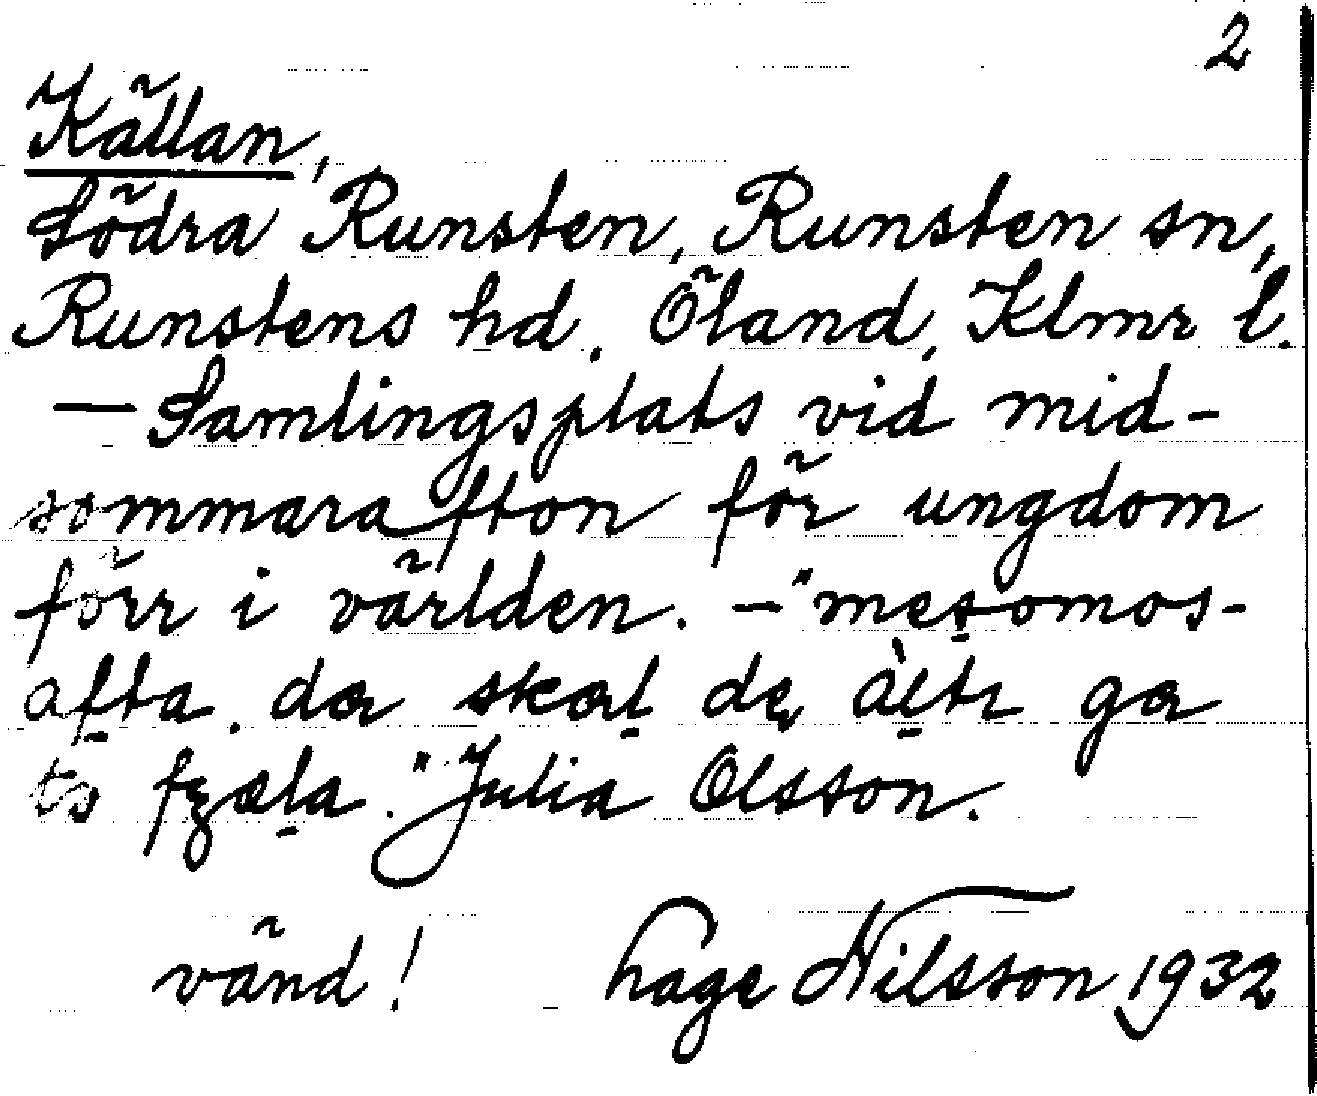 2
Källan,
Södra Runsten, Runsten sn,
Runstens hd. Öland, Klmr l.
— Samlingsplats vid mid-
sommarafton för ungdom
förr i världen. — "mesomos-
afta. dær skæl de àltr gæ
to fzæla." Julia Olsson.
vänd! Hage Nilsson 1932